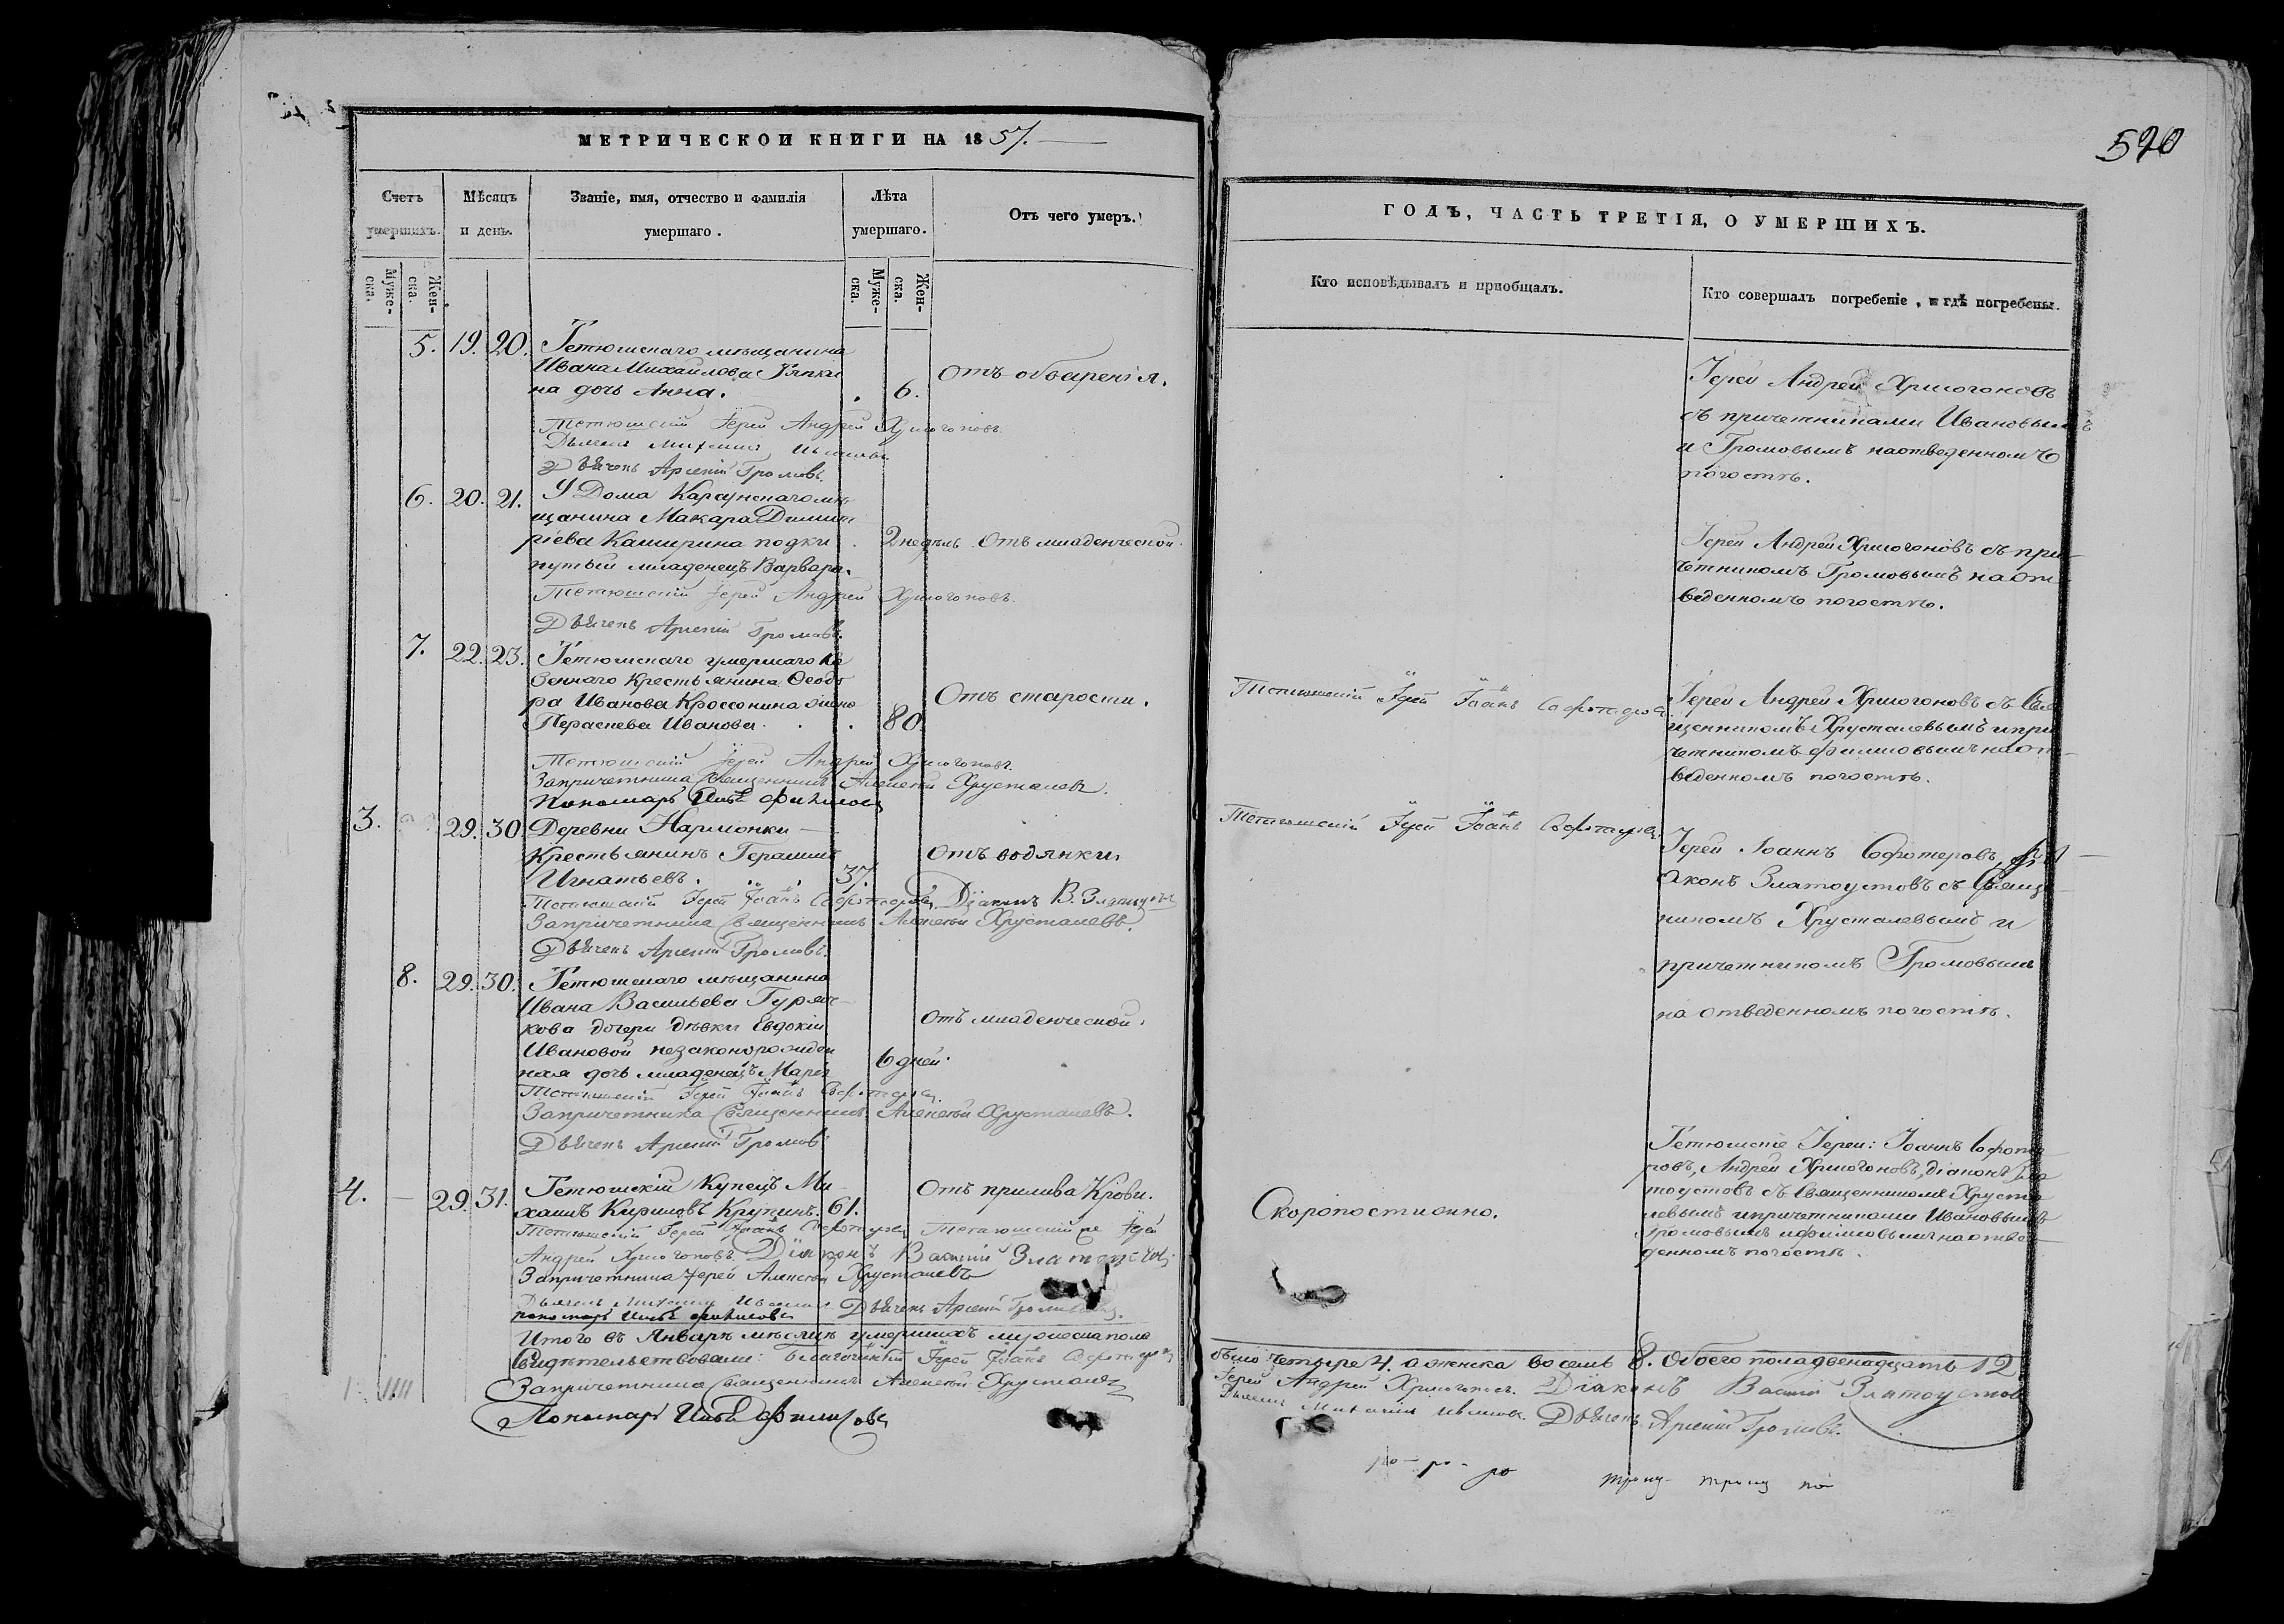 МЕТРИЧЕСКОЙ КНИГИ НА 1857.
Счетъ умершихъ.
Мѣсяцъ и день.
Званіе, имя, отчество и фамилія умершаго.
Лѣта умершаго.
Отъ чего умеръ.
Муже-ска. Жен-ска.
Муже-ска. Жен-ска.
5. 19. 20. Тетюшскаго мѣщанина
Ивана Михайлова
на дочь Анна. 6. Отъ обваренія.
Тетюшскій Іерей Андрей Хрисогоновъ.
Дьячекъ Михаилъ Ивановъ
Дьячекъ Арсеній Громовъ.
6. 20. 21. У Дома Карсунскаго мѣ
щанина Макара Димит
ріева Каширина подки
нутый младенецъ Варвара. 2 недѣль Отъ младенческой.
Тетюшскій Іерей Андрей Хрисогоновъ.
Дьячекъ Арсеній Громовъ.
7. 22. 23. Тетюшскаго умершаго ка
зеннаго Крестьянина Ѳеодо
ра Иванова жена
Параскева Иванова. 80. Отъ старости.
Тетюшскій Іерей Андрей Хрисогоновъ.
За причетника Священникъ Алексѣй Хрусталевъ.
Пономарь Филиповъ
3. 29. 30. Деревни Нармонки
Крестьянинъ Герасимъ
Игнатьевъ. 37. Отъ водянки.
Тетюшскій Іерей Іоаннъ Софотеровъ. Діаконъ В. Златоустовъ
За причетника Священникъ Алексѣй Хрусталевъ.
Дьячекъ Арсеній Громовъ.
8. 29. 30. Тетюшскаго мѣщанина
Ивана Васильева Гуряч
кова дочери дѣвки Евдокіи
Ивановой незаконорожден
ная дочь младенецъ Марія 6 дней. Отъ младенческой.
Тетюшскій Іерей Іоаннъ Софотеровъ.
За причетника Священникъ Алексѣй Хрусталевъ.
Дьячекъ Арсеній Громовъ
4. — 29. 31. Тетюшскій Купецъ Ми
хаилъ Кириловъ Крупинъ. 61. Отъ прилива Крови.
Тетюшскій Іерей Іоаннъ Софотеровъ Тетюшскій Іерей
Андрей Хрисогоновъ. Діаконъ Василій Златоустовъ
За причетника Іерей Алексѣй Хрусталевъ
Дьячекъ Михаилъ Ивановъ Дьячекъ Арсеній Громовъ.
пономарь Филиповъ
Итого въ Январѣ мѣсяцѣ умершихъ мужеска пола
Свидѣтельствовали: Благочинный Іерей Іоаннъ Софотеровъ
За причетника Священникъ Алексѣй Хрусталевъ
Пономарь Филиповъ
520
ГОДЪ, ЧАСТЬ ТРЕТІЯ, О УМЕРШИХЪ.
Кто исповѣдывалъ и пріобщалъ.
Кто совершалъ погребеніе, и гдѣ погребены.
Іерей Андрей Хрисогоновъ
съ причетниками Ивановымъ
и Громовымъ на отведенномъ
погостѣ.
Іерей Андрей Хрисогоновъ съ при
четникомъ Громовымъ на от
веденномъ погостѣ.
Тетюшскій Іерей Іоаннъ Софотеровъ
Іерей Андрей Хрисогоновъ съ Свя
щенникомъ Хрусталевымъ и при
четникомъ Филиповымъ на от
веденномъ погостѣ.
Тетюшскій Іерей Іоаннъ Софотеровъ.
Іерей Іоаннъ Софотеровъ, Ді
аконъ Златоустовъ съ Священ
никомъ Хрусталевымъ и
причетникомъ Громовымъ
на отведенномъ погостѣ.
Скоропостижно.
Тетюшскіе Іереи: Іоаннъ Софоте
ровъ, Андрей Хрисогоновъ, діаконъ Зла
тоустовъ съ Священникомъ Хруста
левымъ и причетниками Ивановымъ
Громовымъ и Филиповымъ на отве
денномъ погостѣ.
было четыре 4. а женска восемь 8. Обоего пола двенадцать 12
Іерей Андрей Хрисогоновъ. Діаконъ Василій Златоустовъ
Дьячекъ Михаилъ Ивановъ. Дьячекъ Арсеній Громовъ.